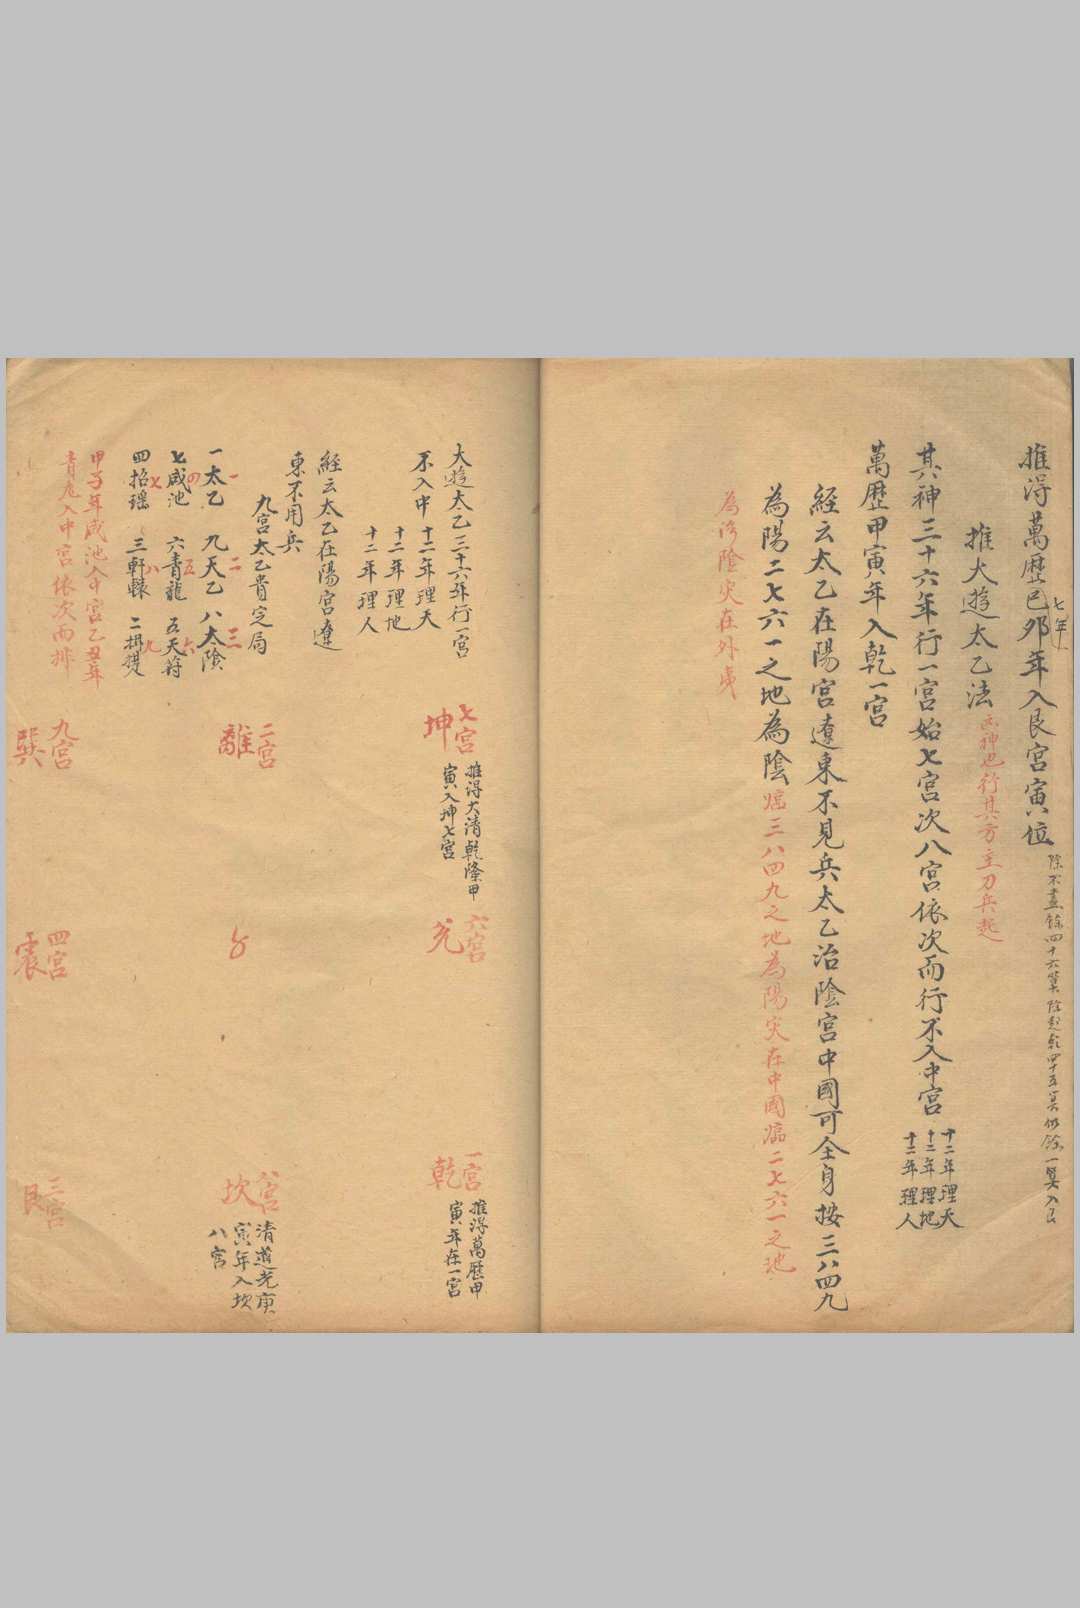 推得萬歷己夘年入艮宮寅位
七年
除不盡餘四十六算除起乾四十五算仍餘一算入艮
推大遊太乙法
凶神也行其方主刀兵起
其神三十六年行一宮始七宮次八宮依次而行不入中宮
十二年理天
十二年理地
十二年理人
萬歷甲寅年入乾一宮
經云太乙在陽宮遼東不見兵太乙治陰宮中國可全身按三八四九
為陽二七六一之地為陰
臨三八四九之地為陽灾在中國臨二七六一之地
為陰灾在外夷
大遊太乙三十六年行一宮
不入中
十二年理天
十二年理地
十二年理人
經云太乙在陽宮遼
東不用兵
九宮太乙貴定局
一太乙 九天乙 八太陰
一 二 三
七咸池 六青龍 五天符
四 五 六
四招瑶 三軒轅 二攝提
七 八 九
甲子年咸池入中宮乙丑年
青龙入中宮依次而排
七宮
坤
推得大清乾隆甲
寅入坤七宮
六宮
兑
一宮
乾
推得萬歷甲
寅年在一宮
二宮
離
八宮
坎
清道光庚
寅年入坎
八宮
九宮
巽
四宮
震
三宮
艮